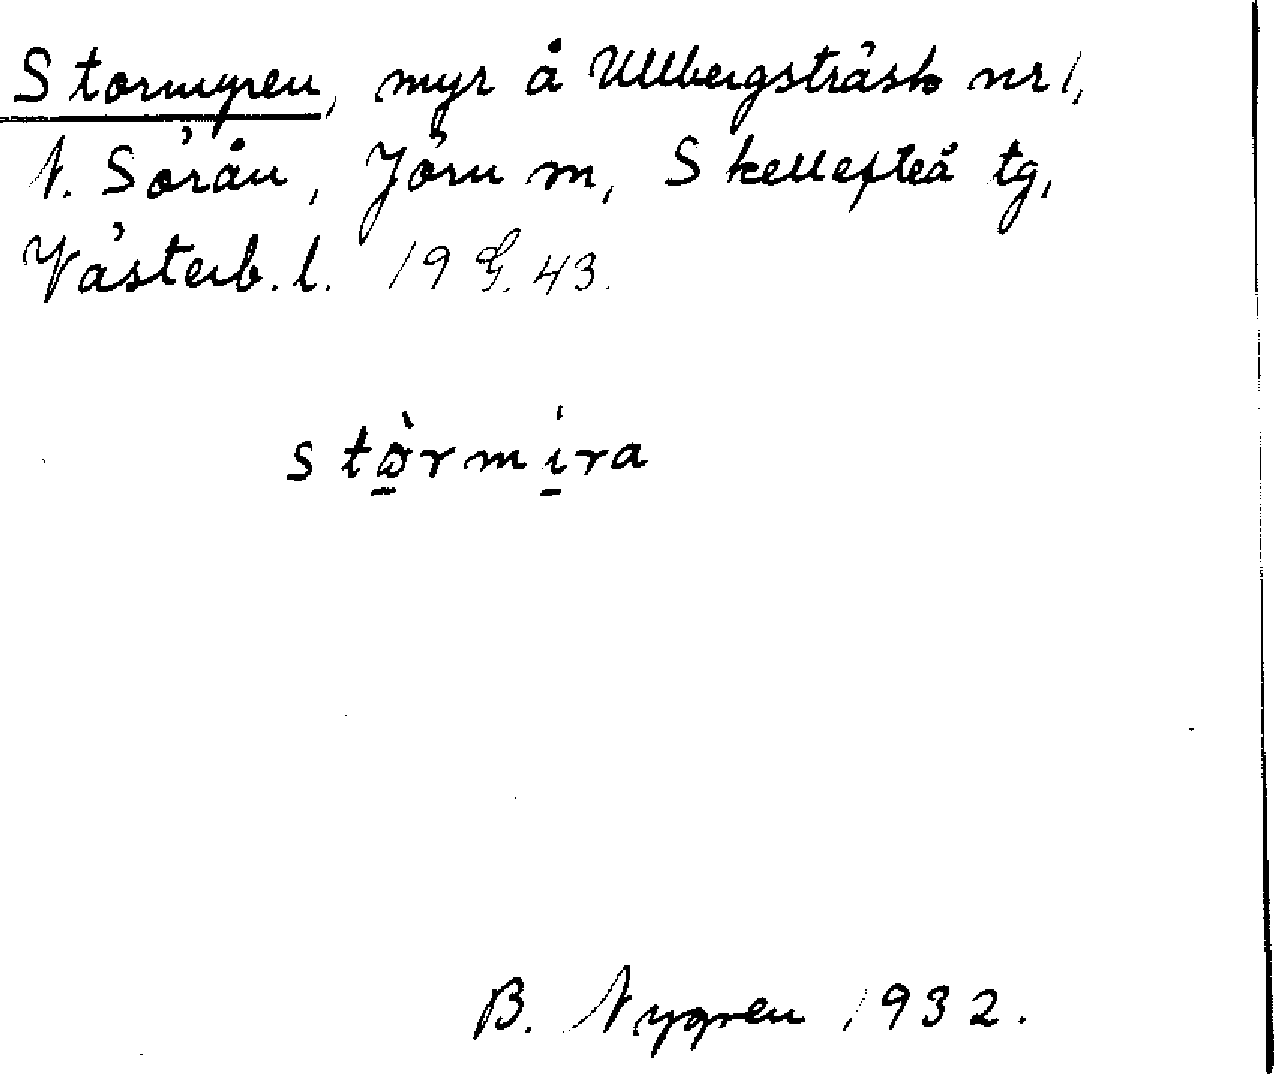 Stormyren, myr å Ullbergsträsk nr 1,
N. Sörån, Jörn sn, Skellefteå tg,
Västerb. l. 19 G. 43.
stòrmira
B. Nygren 1932.